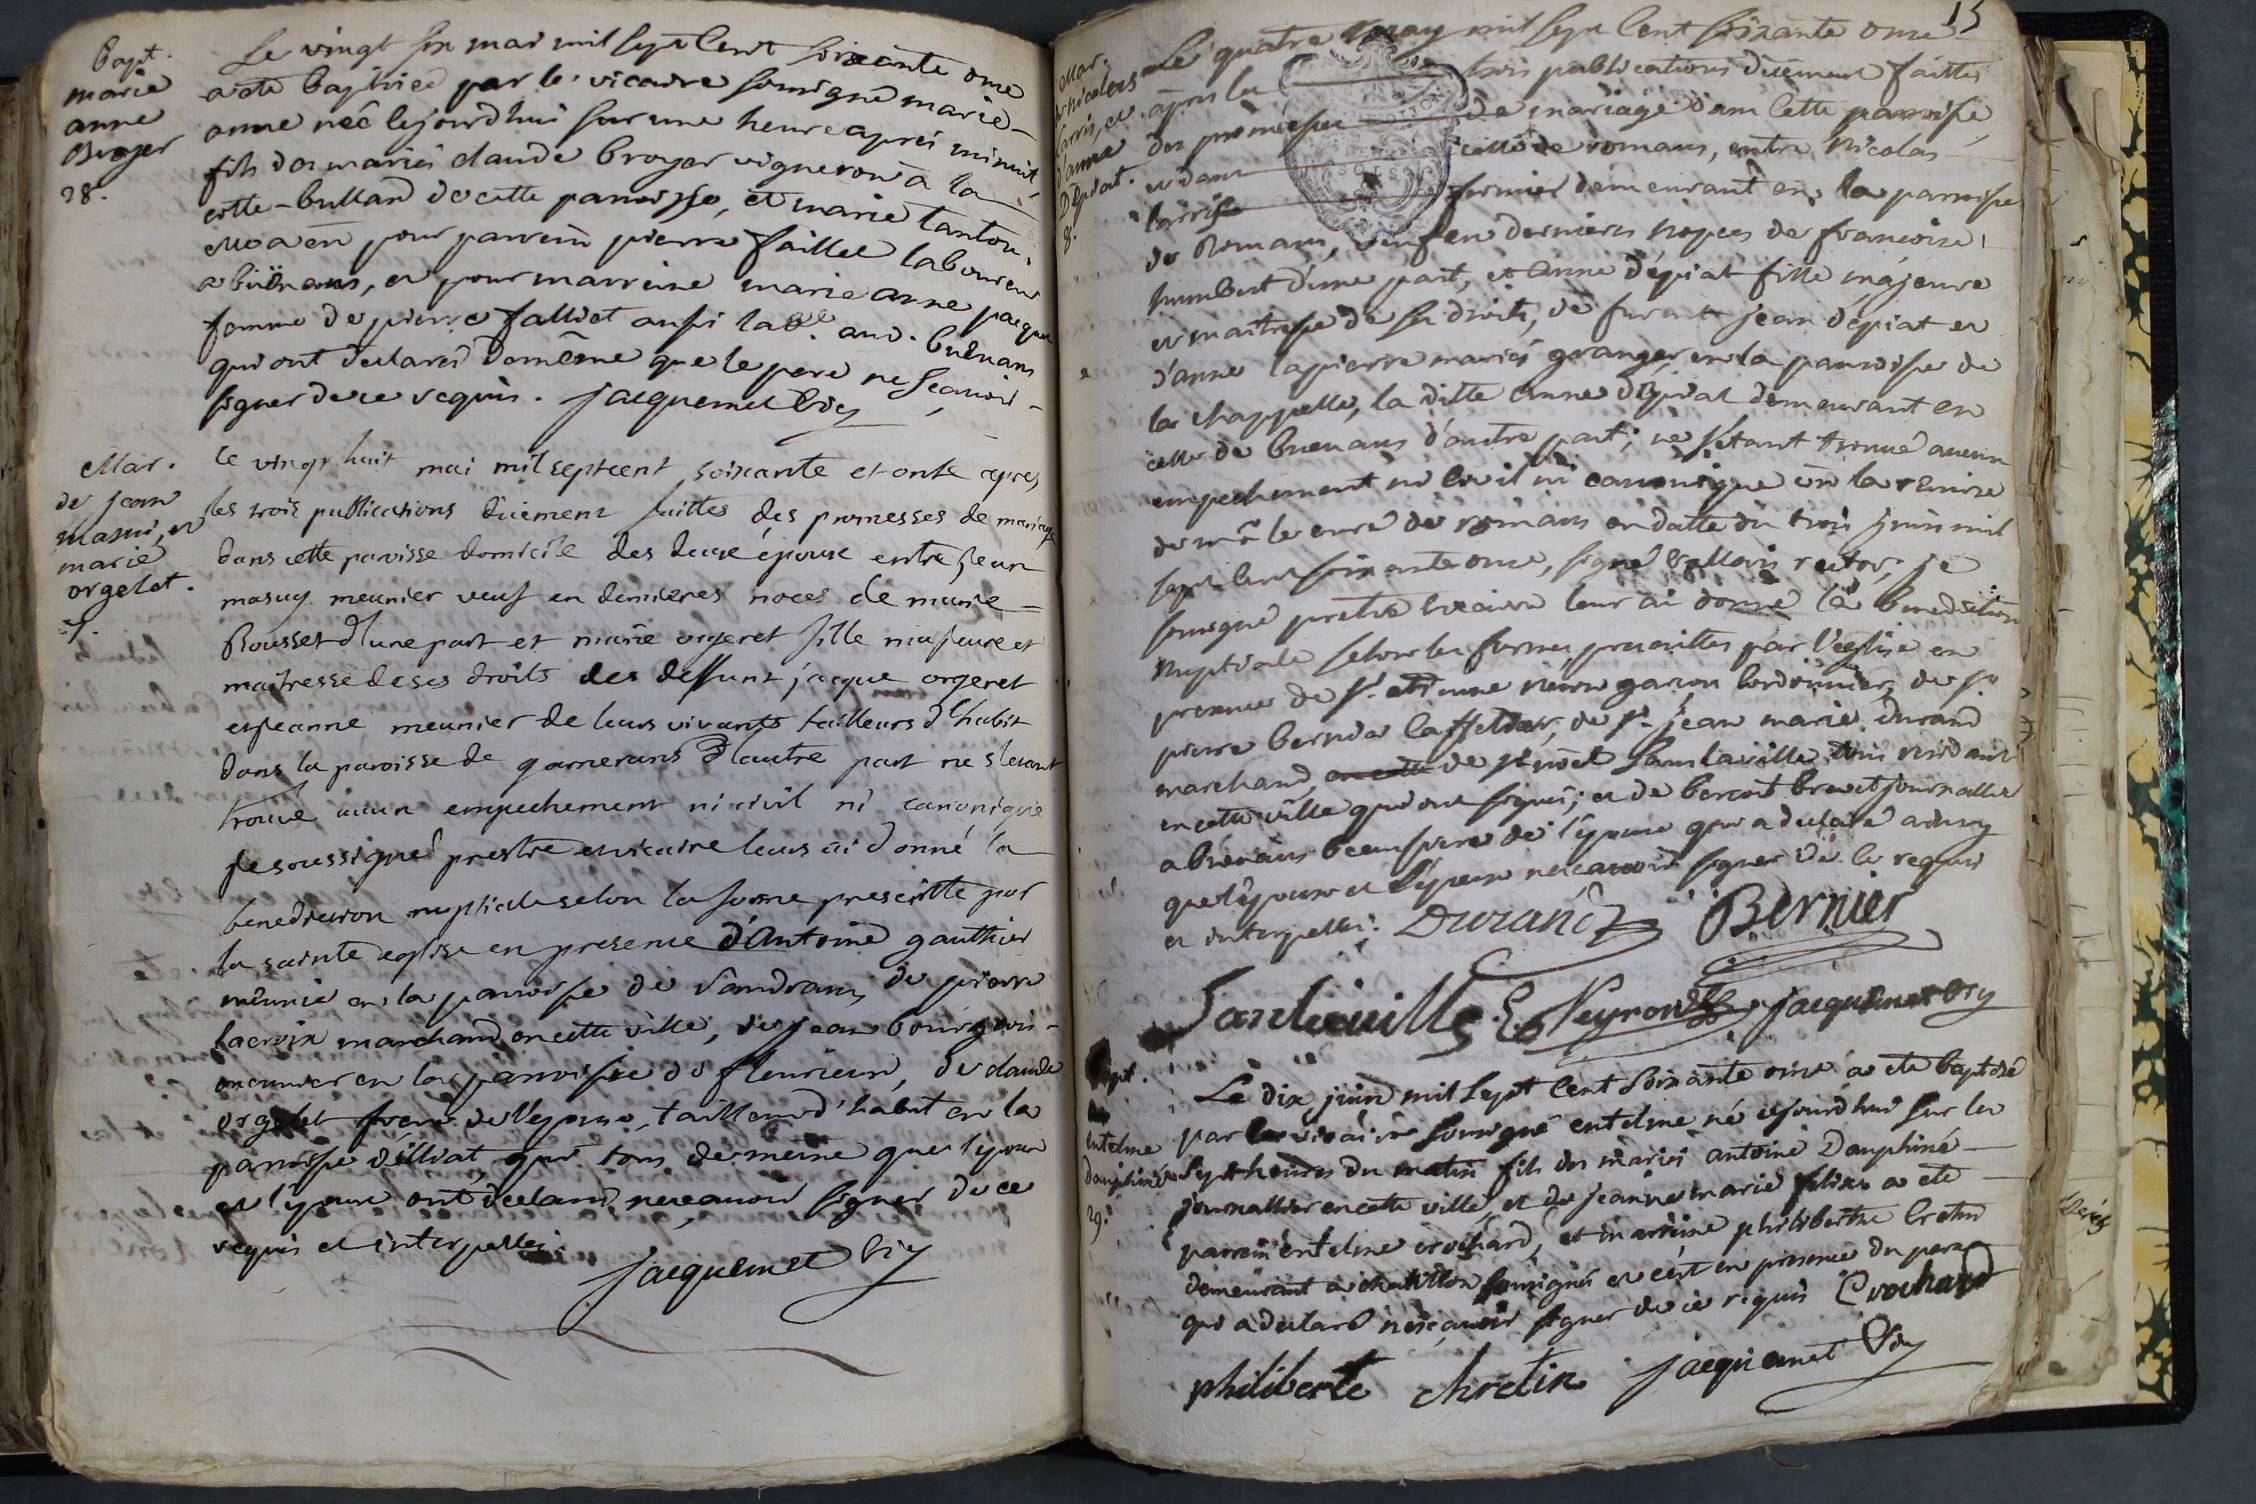 Bapt.
marie
anne
Broyer
28.
Le vingt six mai mil sept cent soixante onze
a été baptisée par le vicaire soussigné marie-
anne née cejourd'hui sur une heure après minuit,
fils des mariés claude broyer vigneron a la
cotte-bulland de cette paroisse, et marie tanton.
Elle a eû pour parrein pierre faillet laboureur
a buënans, et pour marreine marie anne paquet
femme de pierre falliet aussi lab.r aud. buënans
qui ont declarés de même que le pere ne sçavoir
signer de ce requis. jacquemet vic
Mar.
de jean
masui, et
marie
orgelet.
7.
Le vingt huit mai mil sept cent soixante et onze apres
les trois publications dûement faittes des promesses de mariage
dans cette paroisse domicile des deux époux entre jean
masuy meunier veuf en dernieres noces de marie
Rousset d'une part et marie orgeret fille majeure et
maitresse de ses droits des deffunt jacque orgeret
et jeanne meunier de leurs vivants tailleurs d'habit
dans la paroisse de garnerans d'autre part ne s'etant
trouvé aucun empechement ni civil ni canonique
je soussigné prestre et vicaire leurs ai donné la
benediction nuptiale selon la forme prescritte par
la sainte eglise en presence d'Antoine gauthier
meunié en la paroisse de Sandrans, de pierre
lacroix marchand en cette ville, de jean bourgeois
meunier en la paroisse de fleurieux, de claude
orgelet frere de l'epouse, tailleur d'habit en la
paroisse d'illiat, qui tous de même que l'epoux
et l'epouse ont declarés ne sçavoir signer de ce
requis et interpellés.
jacquemet vic
15
Mar.
de nicolas
larris, et
d'anne
Dépiat.
8.
Le quatre may mil sept cent soixante onze
après les trois publications dûement faittes
des promesses de mariage dans cette paroisse
et dans celle de romans, entre Nicolas
larris fermier demeurant en la paroisse
de Romans, veuf en dernieres nopces de francoise
humbert d'une part, et anne dépiat fille majeure
et maitresse de ses droits, de furent jean dépiat et
d'anne lapierre mariés granger en la paroisse de
la chappelle, la ditte anne dépiat demeurant en
celle de buenans d'autre part; ne s'etant trouvé aucun
empechement ni civil ni canonique vû la remise
de mr le curé de romans en datte du trois juin mil
sept cent soixante onze, signé vallois rector; je
soussigné pretre vicaire leur ai donné la benediction
nuptiale selon les formes prescrittes par l'eglise en
presence de sr. etienne neron garcon cordonnier, de sr
pierre bernier caffetier, de sr. jean marie durand
marchand, de sr noël sandaville tous residants
en cette ville qui ont signés; et de benoit brevet journallier
a buenans beaupere de l'epouse qui a declaré ainsy
que l'epoux et l'epouse ne sçavoir signer de ce requis
et interpellés. Durand Bernier
Sandaville E Neyron jacquemet vic
Bapt.
entelme
dauphiné
29.
Le dix juin mil sept cent soixante onze a été baptisé
par le vicaire soussigné entelme né cejourd'hui sur les
sept heures du matin fils des mariés antoine Dauphiné
journallier en cette ville, et de jeanne marie felix a eté
parrein entelme crochard, et marreine philiberthe cretin
demeurant a chatillon soussignés et c'est en presence du pere
qui a declaré ne sçavoir signer de ce requis Crochard
philiberte chretin jacquemet vic